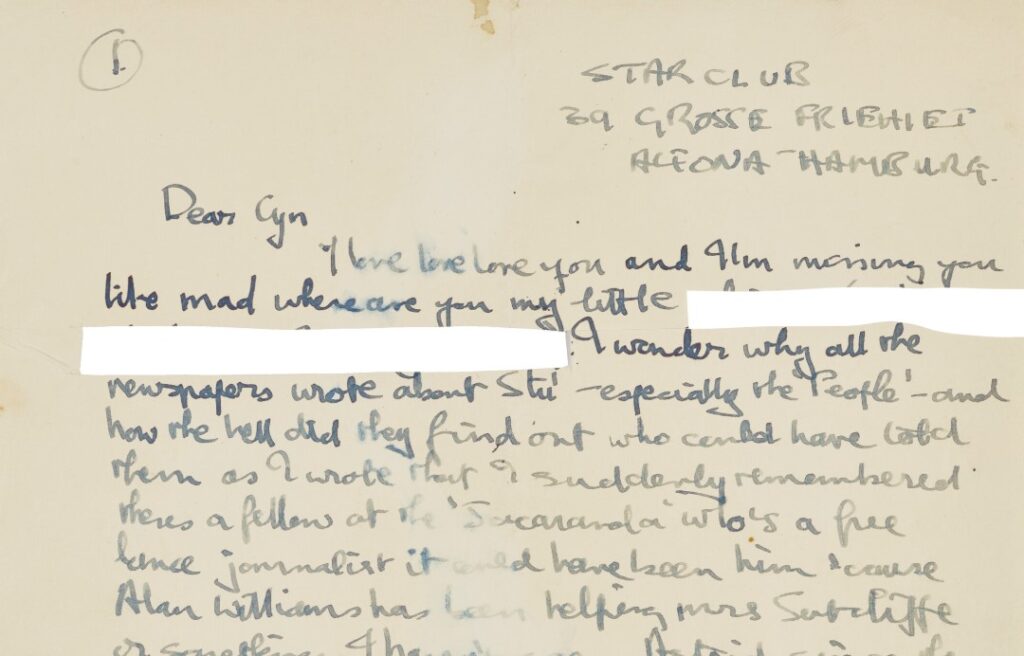 1
STAR CLUB
39 GROSSE FRIEHIET
ALTONA - HAMBURG.
Dear Cyn
I love love love you and I'm missing you
like mad where are you my little
I wonder why all the
newspapers wrote about Stu - especially the 'People' - and
how the hell did they find out who could have told
them as I wrote that I suddenly remembered
theres a fellow at the 'Jacaranda' who's a free
lance journalist it could have been him 'cause
Alan Williams has been helping mrs Sutcliffe
or something